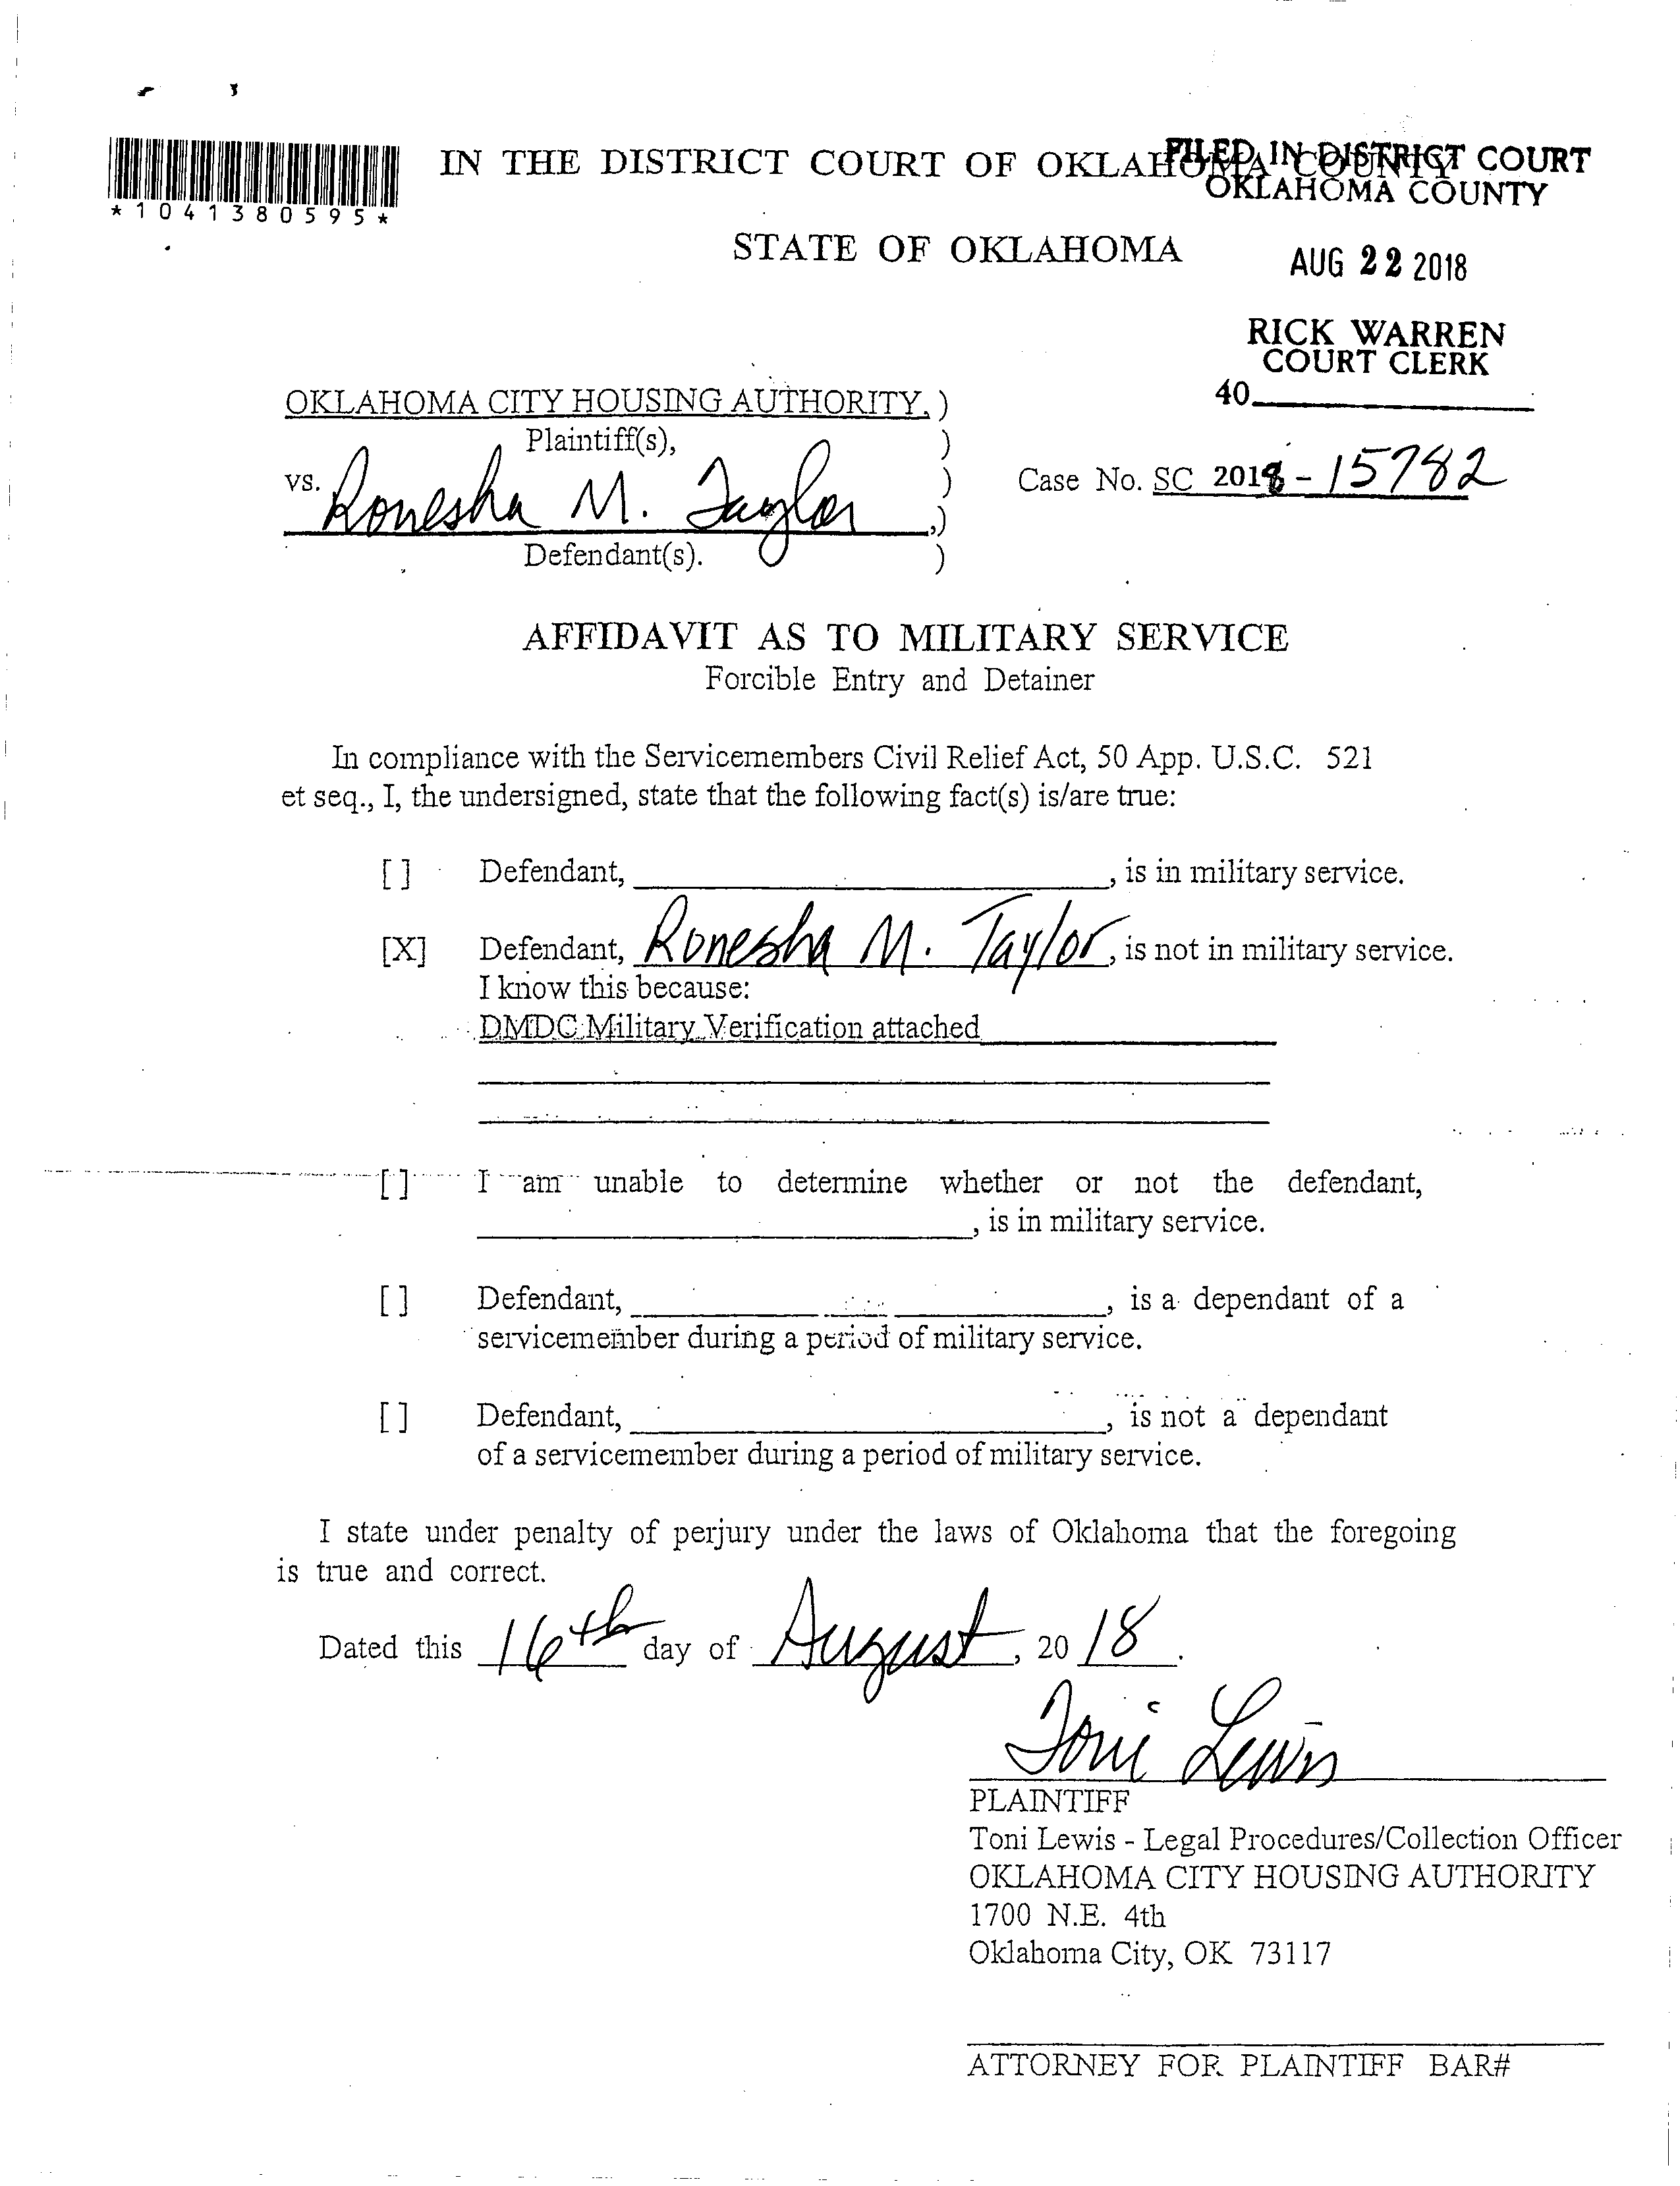 IN THE DISTRICT COURT OF OKLAHOMA COUNTY
FILED IN DISTRICT COURT
OKLAHOMA COUNTY
*1041380595*
STATE OF OKLAHOMA
AUG 22 2018
RICK WARREN
COURT CLERK
40
OKLAHOMA CITY HOUSING AUTHORITY, )
Plaintiff(s), )
vs. Ronesha M. Taylor )
,)
Defendant(s). )
Case No. SC 2018 - 15782
AFFIDAVIT AS TO MILITARY SERVICE
Forcible Entry and Detainer
In compliance with the Servicemembers Civil Relief Act, 50 App. U.S.C. 521
et seq., I, the undersigned, state that the following fact(s) is/are true:
[ ] Defendant, , is in military service.
[X] Defendant, Ronesha M. Taylor, is not in military service.
I know this because:
DMDC Military Verification attached
[ ] I am unable to determine whether or not the defendant,
, is in military service.
[ ] Defendant, , is a dependant of a
servicemember during a period of military service.
[ ] Defendant, , is not a dependant
of a servicemember during a period of military service.
I state under penalty of perjury under the laws of Oklahoma that the foregoing
is true and correct.
Dated this 16th day of August, 20 18.
Toni Lewis
PLAINTIFF
Toni Lewis - Legal Procedures/Collection Officer
OKLAHOMA CITY HOUSING AUTHORITY
1700 N.E. 4th
Oklahoma City, OK 73117
ATTORNEY FOR PLAINTIFF BAR#